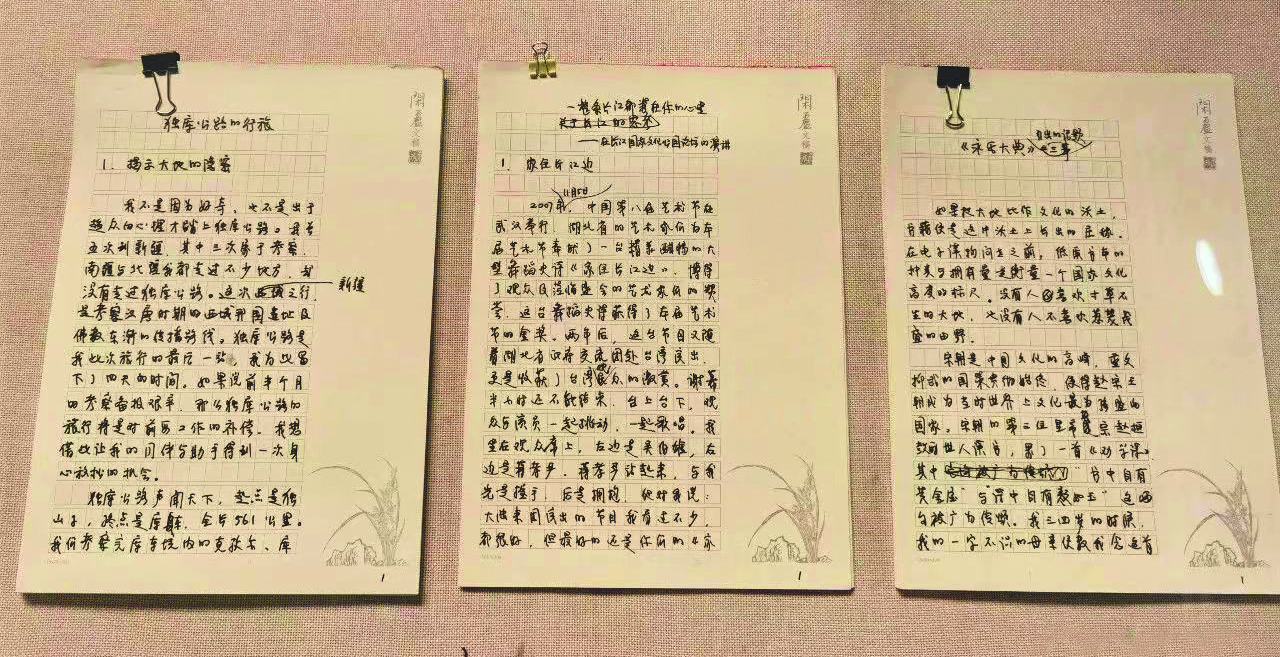 闲庐文稿
独库公路的行旅
1. 揭示大地的隐密
我不是因为好奇，也不是出于
趋众的心理才踏上独库公路。我曾
五次到新疆，其中三次属于考察，
南疆与北疆我都走过不少地方，却
没有走过独库公路。这次之行，
新疆
是考察汉唐时期的西域邦国遗址及
佛教东渐的传播路线。独库公路是
我此次旅行的最后一站，我为此留
下了四天的时间。如果说前半个月
的考察备极艰辛，那么独库公路的
旅行将是对前段工作的补偿，我想
借此让我的同伴与助手得到一次身
心放松的机会。
独库公路声闻天下，起点是独
山子，终点是库车，全长561公里。
我们考察完库车境内的克孜尔、库
1
闲庐文稿
一整条长江都装在你的心里
关于长江的
——在长江国家文化公园论坛的演讲
1. 家住长江边
11月5日
2007年，中国第八届艺术节在
武汉举行，湖北省的艺术家们为本
届艺术节奉献了一台精美翻的大
型舞蹈史诗《家住长江边》，博得
了观众及莅临盛会的艺术家们的赞
赏，这台舞蹈史诗获得了本届艺术
节的金奖。两年后，这台节目又随
着湖北省政府交流团赴台湾演出，
更是收获了台湾观众的激赏。谢幕
半小时还不能结束，台上台下，观
众与演员一起舞动，一起歌唱。我
坐在观众席上，左边是吴伯雄，右
边是蒋孝严。蒋孝严站起来，与我
先是握手，后是拥抱，他对我说：
大陆来团演出的节目我看过不少，
都很好，但最好的还是你们的《家
1
闲庐文稿
自我的记忆
《永乐大典》三事
如果把大地比作文化的沃土，
书籍便是这片沃土上长出的庄稼。
在电子读物问世之前，纸质书本的
种类与拥有量是衡量一个国家文化
高度的标尺。没有人喜欢寸草不
生的大地，也没有人不喜欢葱茏茂
盛的田野。
宋朝是中国文化的高峰，重文
抑武的国策贯彻始终，使得赵宋王
朝成为当时世界上文化最为鼎盛的
国家。宋朝的第三位皇帝真宗赵恒
教育世人读书，累了一首《劝学诗》
其中“书中自有
黄金屋”与“书中自有颜如玉”这两
句被广为传颂。我三四岁的时候，
我的一字不识的母亲便教我念这首
1